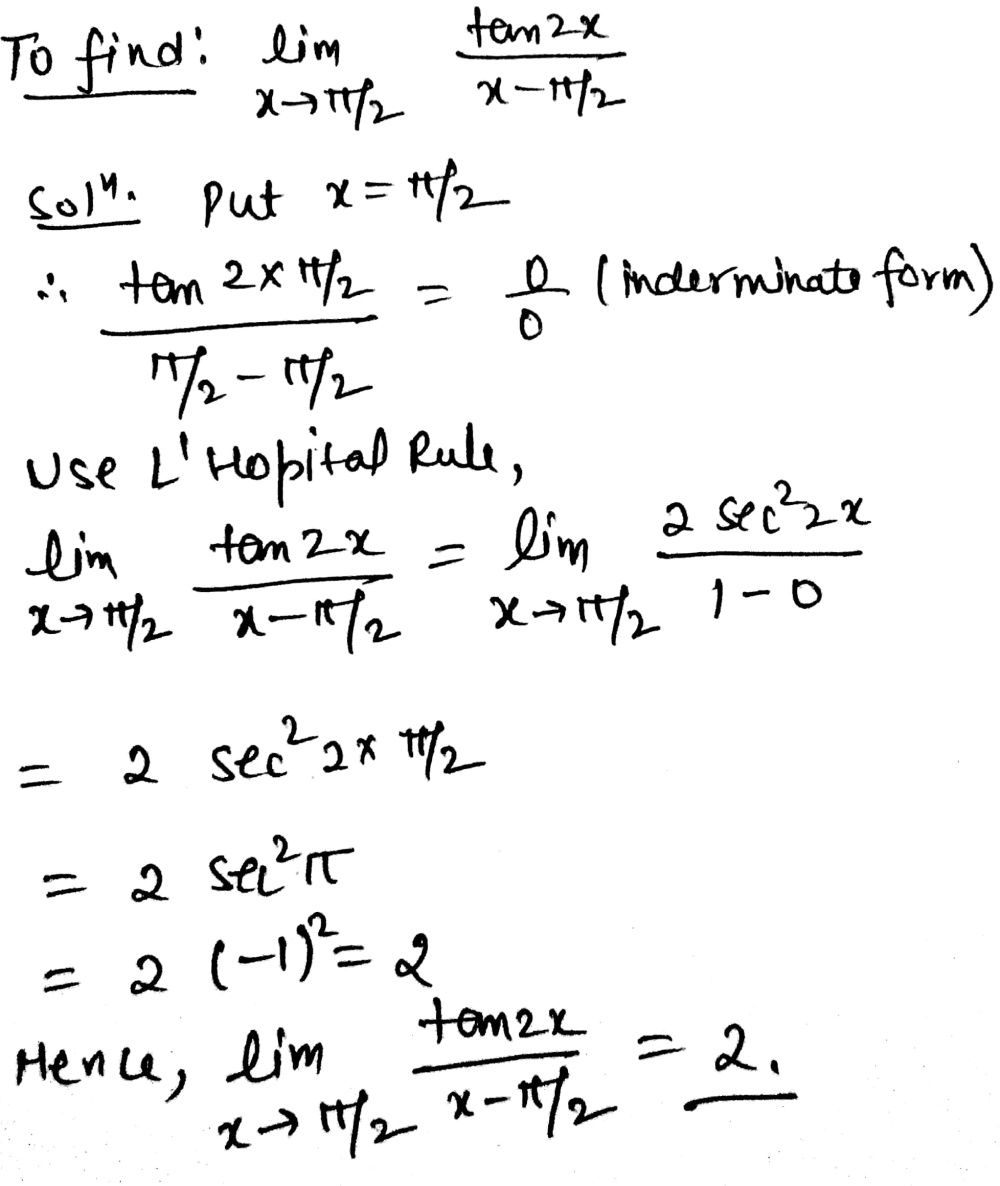 To find: lim x→π/2 tan2x / x-π/2
Solⁿ. Put x = π/2
∴ tan 2×π/2 / π/2 - π/2 = 0/0 (inderminate form)
Use L'Hopital Rule,
lim x→π/2 tan2x / x-π/2 = lim x→π/2 2 sec²2x / 1-0
= 2 sec²2×π/2
= 2 sec²π
= 2 (-1)² = 2
Hence, lim x→π/2 tan2x / x-π/2 = 2.